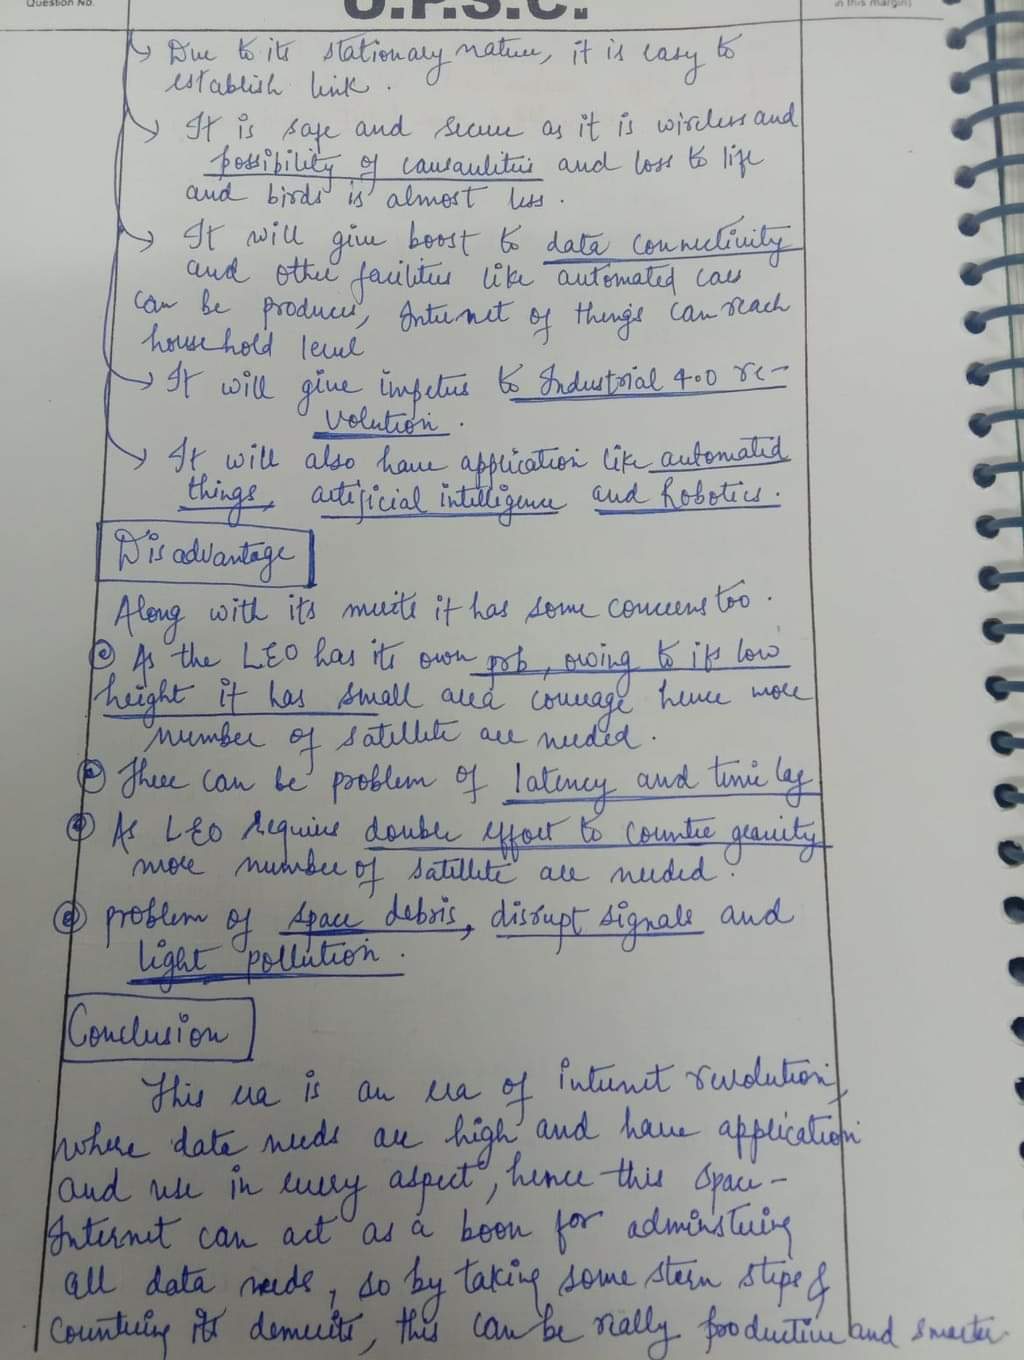 Question No.
U.P.S.C.
in this margin)
Due to its stationary nature, it is easy to
establish link.
It is safe and secure as it is wireless and
possibility of causaulities and loss to life
and birds is almost less.
It will give boost to data connectivity
and other facilities like automated cars
can be produces, Internet of things can reach
household level
It will give impetus to Industrial 4.0 re-
volution.
It will also have application like automated
things, artificial intelligence and Robotics.
Disadvantage
Along with its merits it has some concerns too.
As the LEO has its own prb, owing to its low
height it has small area coverage hence more
number of satellite are needed.
There can be problem of latency and time lag
As LEO requires double effort to counter gravity
more number of satellite are needed.
problem of space debris, disrupt signals and
light pollution.
Conclusion
This era is an era of internet revolution,
where data needs are high and have application
and use in every aspect, hence this space-
Internet can act as a boon for adminstering
all data needs, so by taking some stern steps &
countering its demerits, this can be really productive and smarter